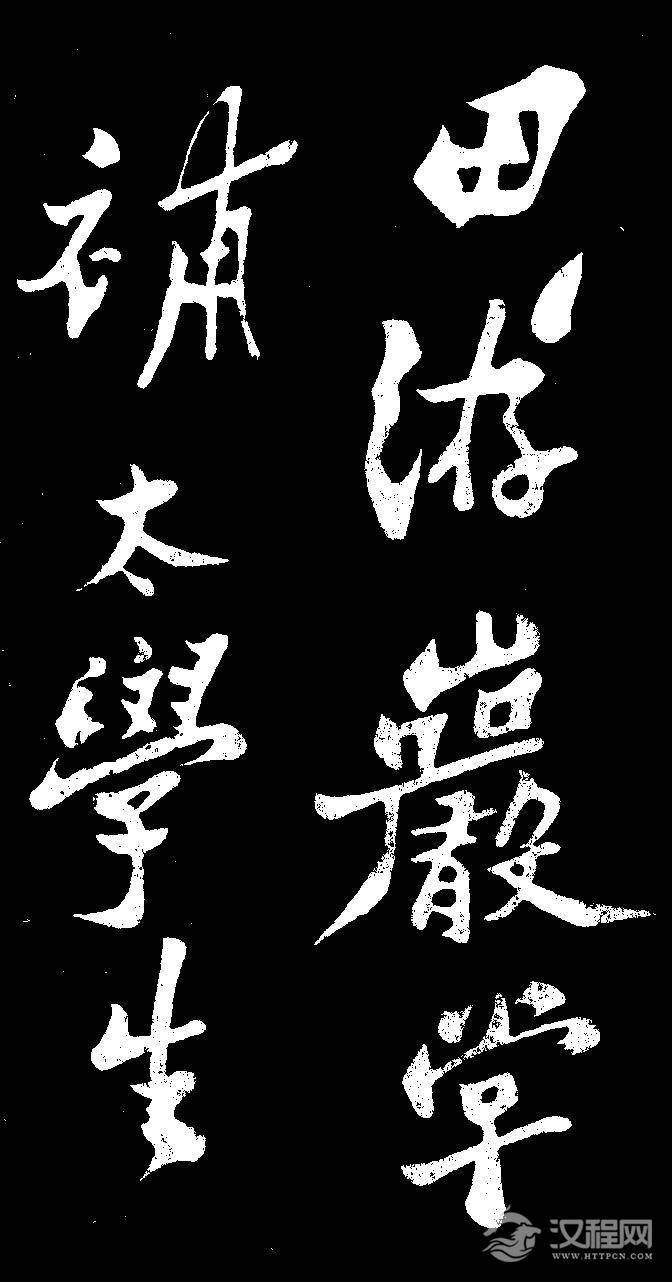 田游巖常
補太學生
汉程网
WWW.HTTPCN.COM